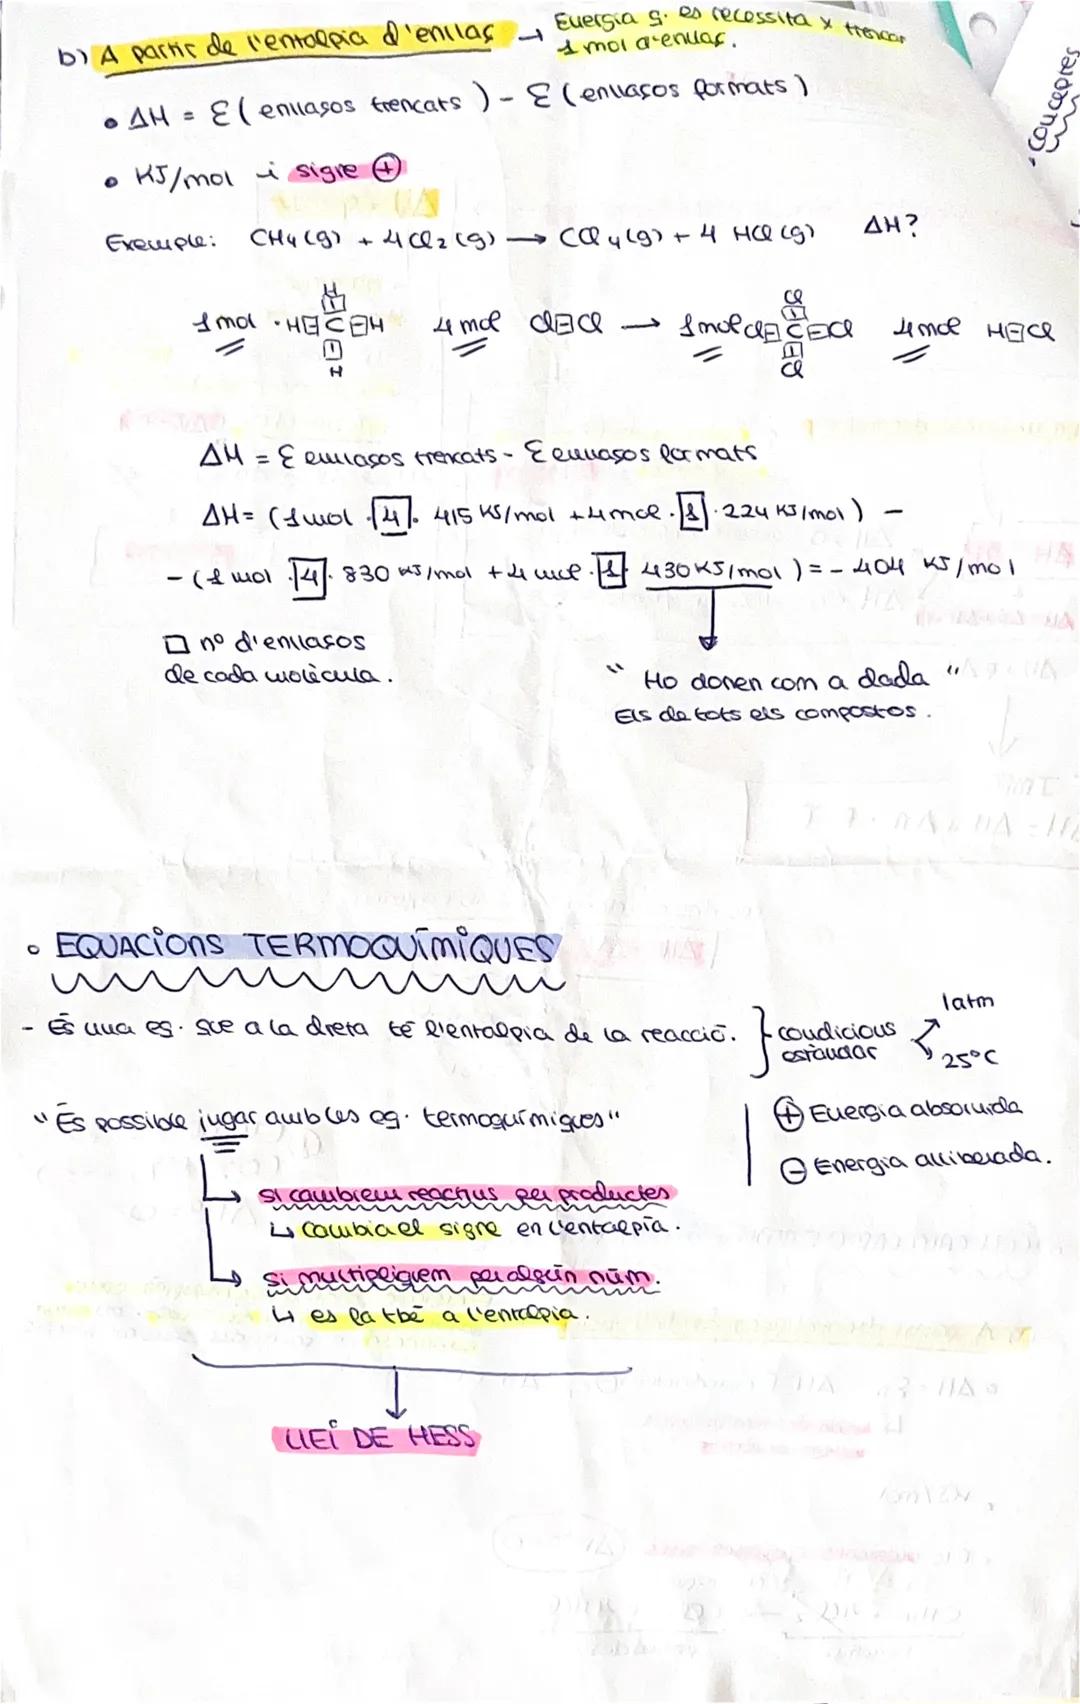 b) A partir de l'entalpia d'enllaç → Energia q. es necessita x trencar
1 mol d'enllaç.
• ΔH = Σ (enllaços trencats) - Σ (enllaços formats)
• KJ/mol i signe ⊕
Exemple: CH4 (g) + 4Cl2 (g) → CCl4 (g) + 4 HCl (g) ΔH?
H
1 mol · H C H 4 mol Cl Cl → 1 mol Cl C Cl 4 mol H Cl
H
Cl
Cl
ΔH = Σ enllaços trencats - Σ enllaços formats
ΔH = (1 mol · 4 · 415 KJ/mol + 4 mol · 1 · 224 KJ/mol) -
- (1 mol · 4 · 830 KJ/mol + 4 mol · 1 · 430 KJ/mol) = - 404 KJ/mol
□ nº d'enllaços
de cada molècula.
" Ho donen com a dada "
Els de tots els compostos.
• Conceptes
• EQUACIONS TERMOQUÍMIQUES
- És una eq. que a la dreta té l'entalpia de la reacció. } condicions estàndar
1atm
25°C
"És possible jugar amb les eq. termoquímiques"
⊕ Energia absorvida
⊖ Energia alliberada.
↳ si cambiem reactius per productes
↳ cambia el signe en l'entalpia.
↳ si multipliquem per algún núm.
↳ es fa tbé a l'entalpia.
LLEI DE HESS